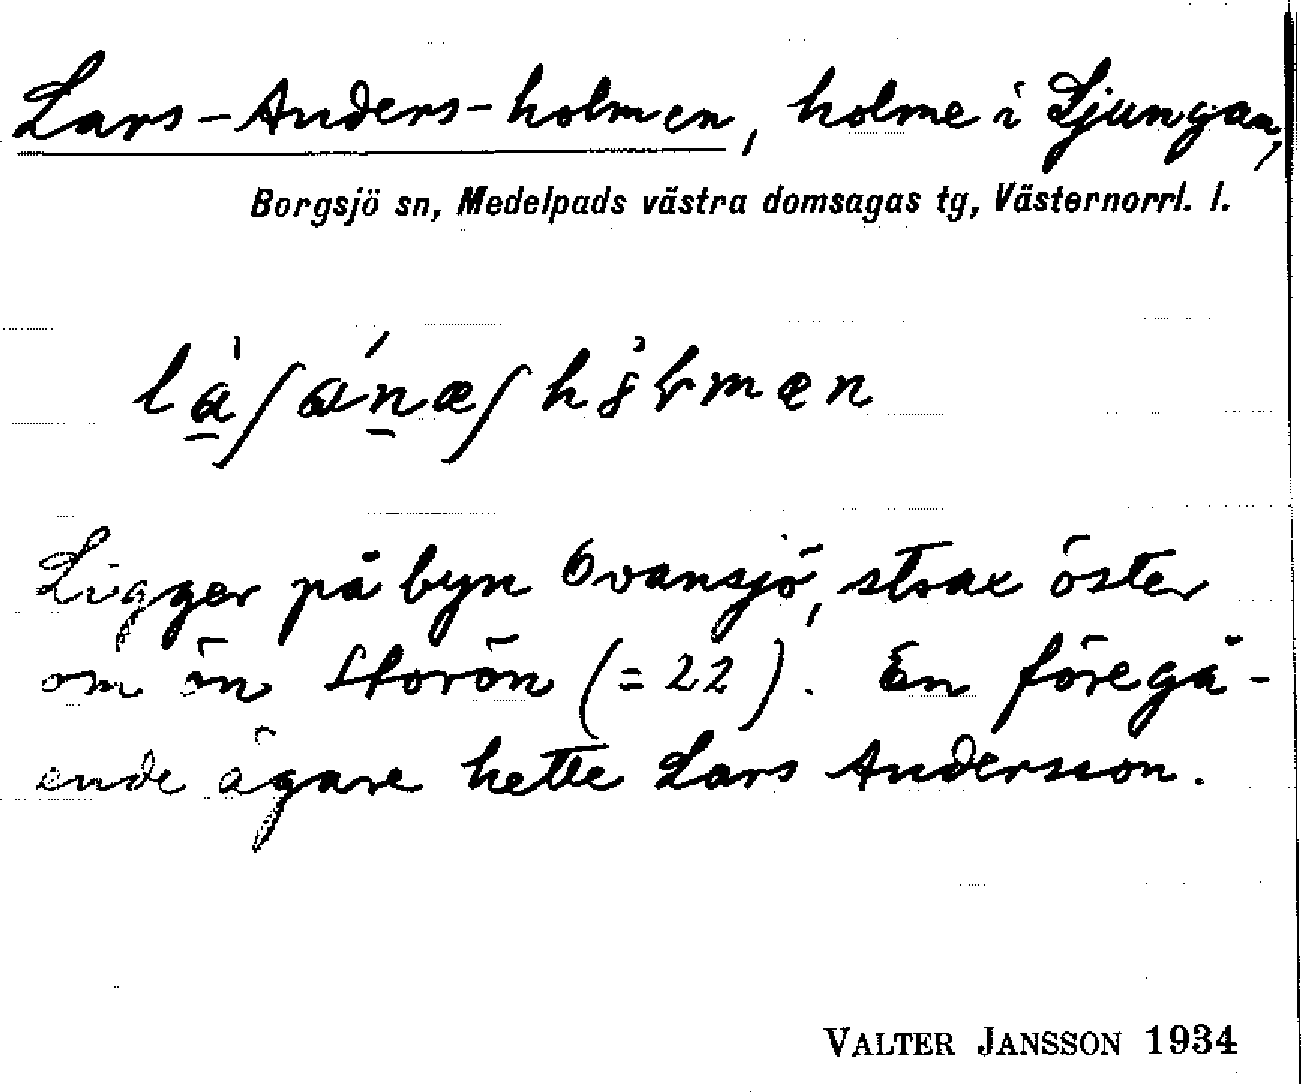 Lars-Anders-holmen, holme i Ljungan,
Borgsjö sn, Medelpads västra domsagas tg, Västernorrl. l.
Ligger på byn Ovansjö, strax öster
om ön Storön (=22). En föregå-
ende ägare hette Lars Andersson.
VALTER JANSSON 1934